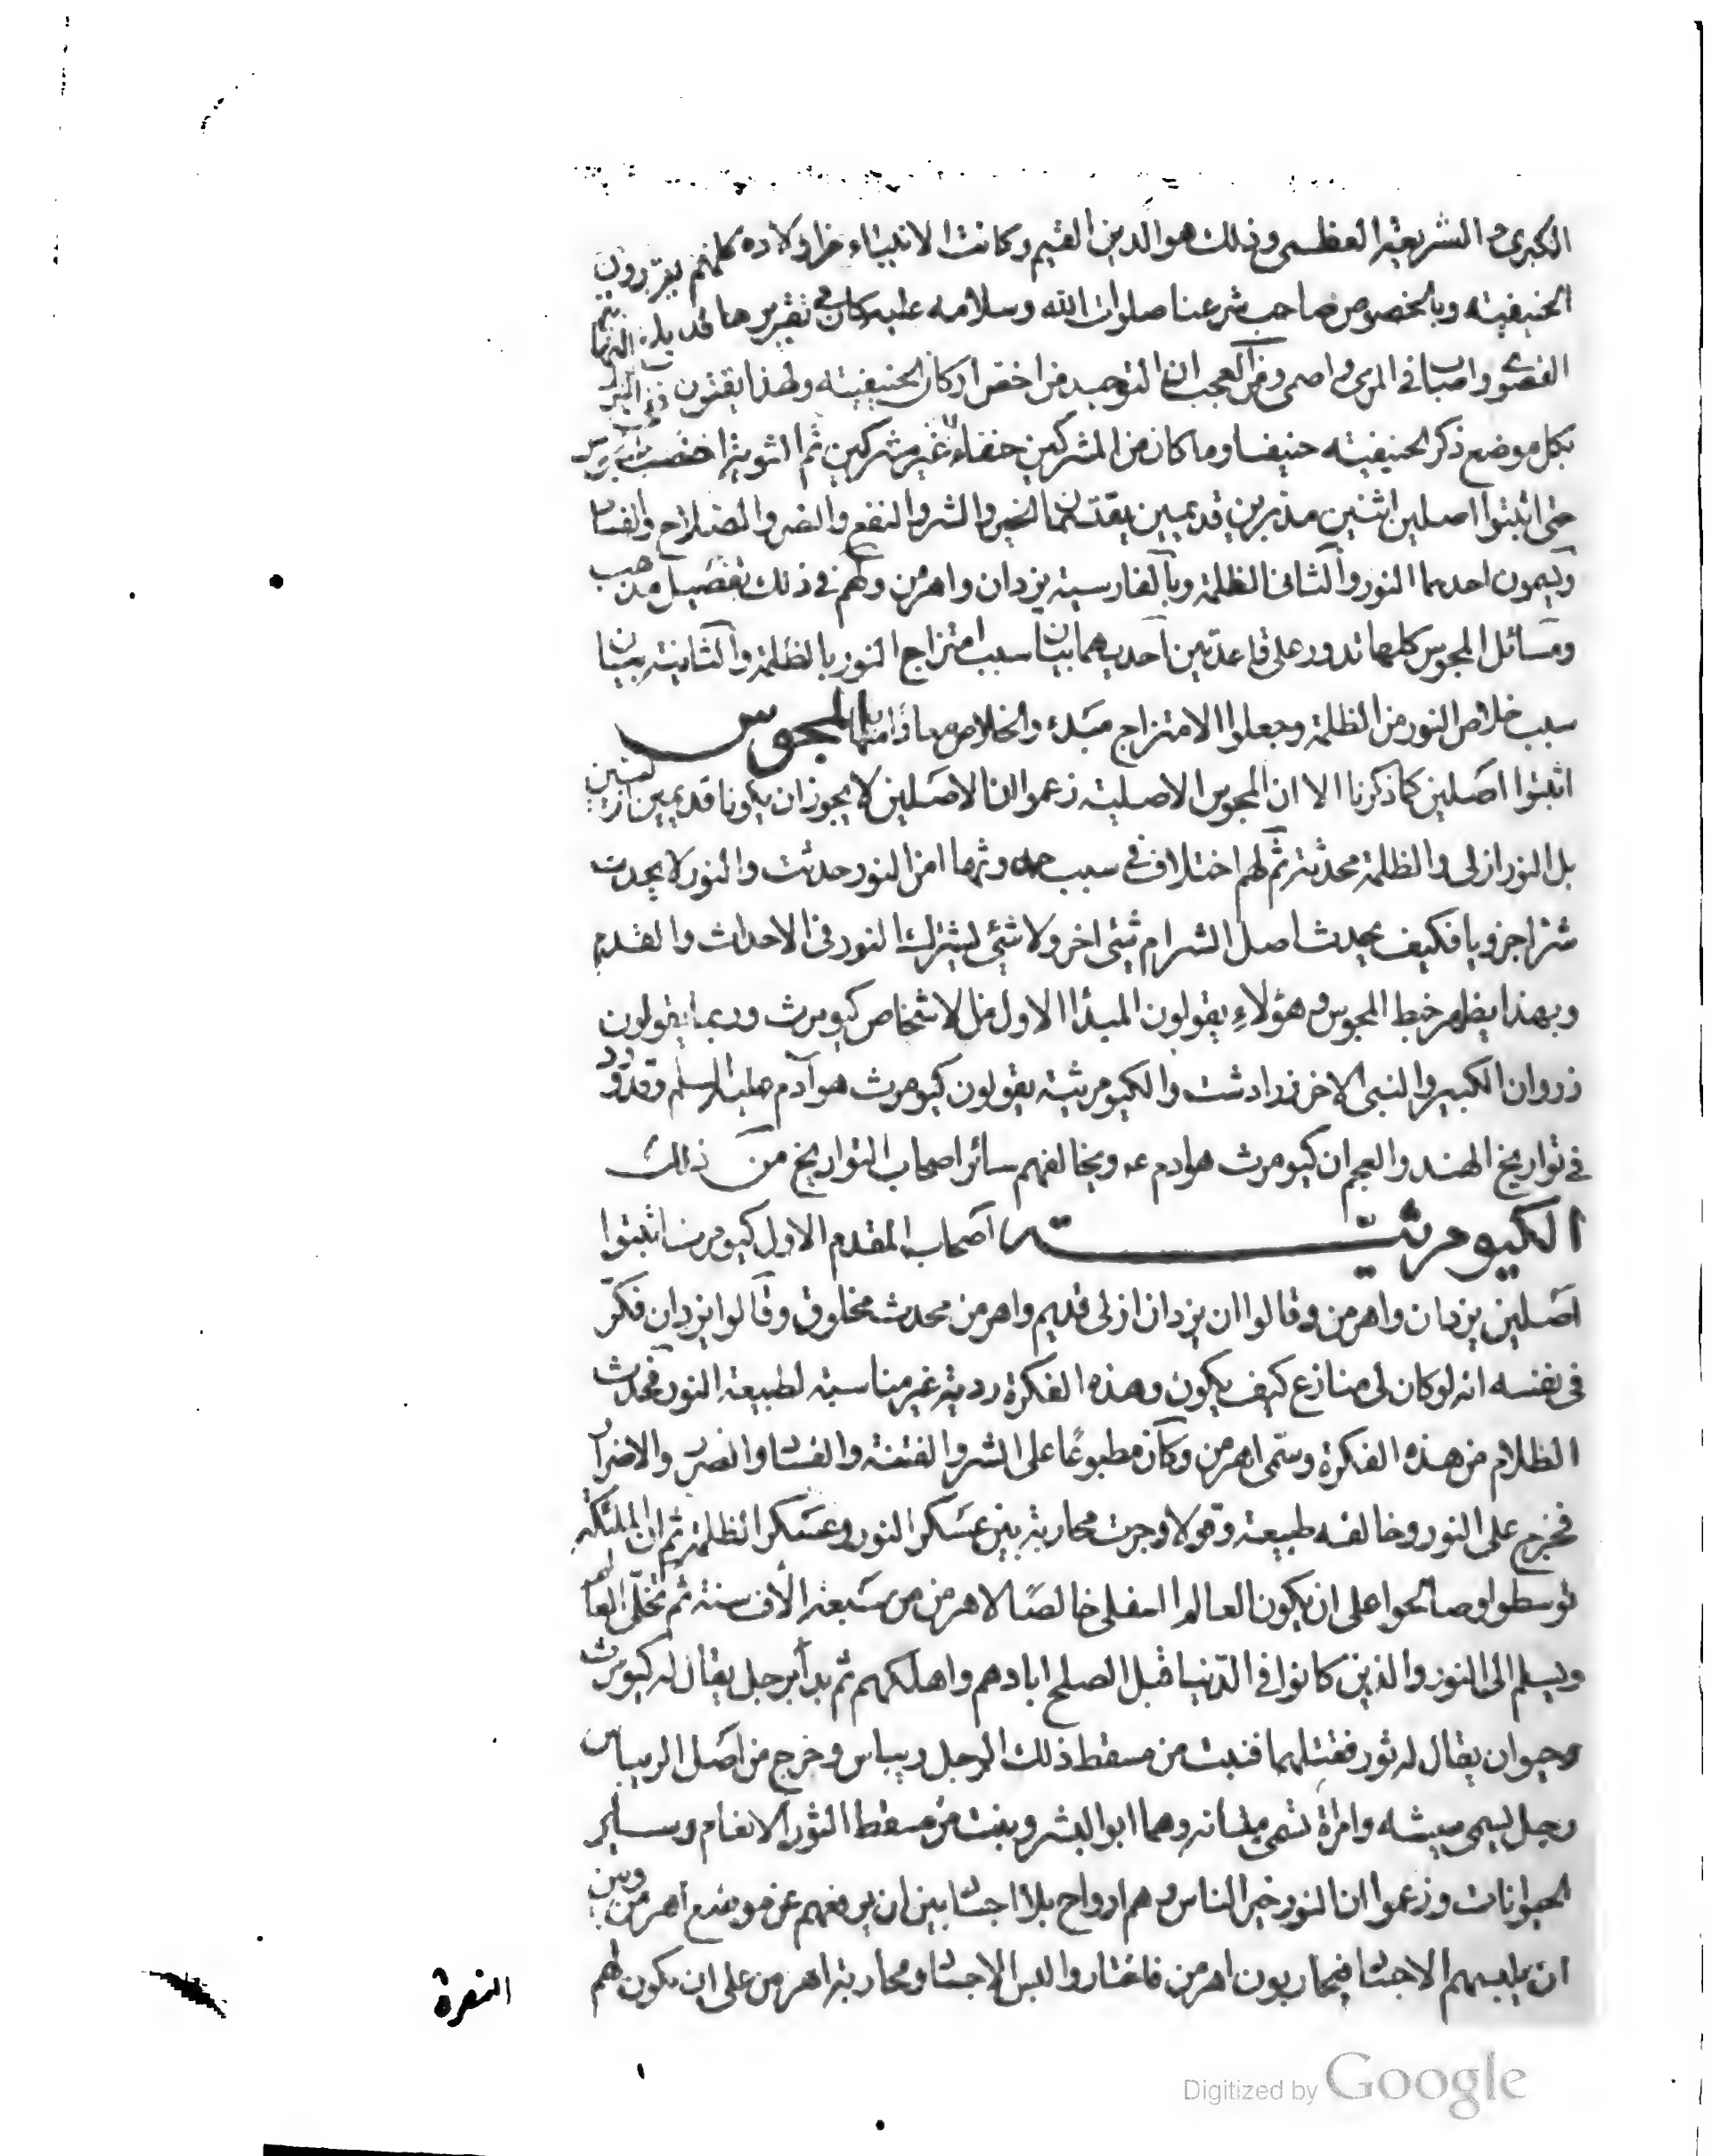 الكبرى و الشريعة العظمى وذلك هو الدين القيم وكانت الانبياء من اولاده كلهم يقررون
الحنيفيته وبالخصوص صاحب شرعنا صلوات الله وسلامه عليه كان في تقريرها قد بلغ النهاية
القصوى واصاب في المرمى واصمى ومن العجب ان التوحيد من اخص اركان الحنيفيته ولهذا يقترن نفي الشرك
بكل موضع ذكر الحنيفيته حنيفا وما كان من المشركين حنفاء لله غير مشركين ثم الثنوية اختصت
حتى اثبتوا اصلين اثنين مدبرين قديمين يقتسمان الخير والشر والنفع والضر والصلاح والفساد
ويسمون احدهما النور والثاني الظلمة وبالفارسية يزدان واهرمن ولهم في ذلك تفصيل مذهب
ومسائل المجوس كلها تدور على قاعدتين احديهما بيان سبب امتزاج النور بالظلمة والثانية بيان
سبب خلاص النور من الظلمة وجعلوا الامتزاج مبدء والخلاص معادا المجوس
اثبتوا اصلين كما ذكرنا الا ان المجوس الاصلية زعموا ان الاصلين لا يجوز ان يكونا قديمين ازليين
بل النور ازلى والظلمة محدثة ثم لهم اختلاف في سبب حدوثها امن النور حدثت والنور لا يحدث
شرا جزويا فكيف يحدث اصل الشر ام شئ اخر ولا شئ يشرك النور في الاحداث والقدم
وبهذا يظهر خبط المجوس و هؤلاء يقولون المبدأ الاول من الاشخاص كيومرث وربما يقولون
زروان الكبير والنبى الاخر زرادشت والكيومرثية يقولون كيومرث هو آدم عليه السلم وقد ورد
في تواريخ الهند والعجم ان كيومرث هو ادم عه ويخالفهم سائر اصحاب التواريخ من ذلك
الكيومرثيته اصحاب المقدم الاول كيومرث اثبتوا
اصلين يزدان واهرمن وقالوا ان يزدان ازلى قديم واهرمن محدث مخلوق وقالوا يزدان فكر
فى نفسه انه لو كان لى منازع كيف يكون وهذه الفكرة ردية غير مناسبة لطبيعة النور فحدث
الظلام من هذه الفكرة وسمى اهرمن وكان مطبوعا على الشر والفتنة والفساد والضر والاضرار
فخرج على النور وخالفه طبيعة وقولا وجرت محاربة بين عسكر النور وعسكر الظلمة ثم ان الملئكة
توسطوا وصالحوا على ان يكون العالم السفلى خالصا لاهرمن من سبعة الاف سنة ثم تخلى العالم
ويسلم الى النور والذين كانوا في الدنيا قبل الصلح ابادهم واهلكهم ثم بدأ برجل يقال له كيومرث
وحيوان يقال له ثور فقتلهما فنبت من مسقط ذلك الرجل ريباس وخرج من اصل الريباس
رجل يسمى ميشه وامراة تسمى ميشانه وهما ابوا البشر ونبت من مسقط الثور الانعام وساير
الحيوانات وزعموا ان النور خير الناس و هم ارواح بلا اجساد بين ان يرفعهم عن موضع اهرمن وبين
ان يلبسهم الاجساد فيحاربون اهرمن فاختاروا لبس الاجساد ومحاربة اهرمن على ان يكون لهم
النصرة
Digitized by Google